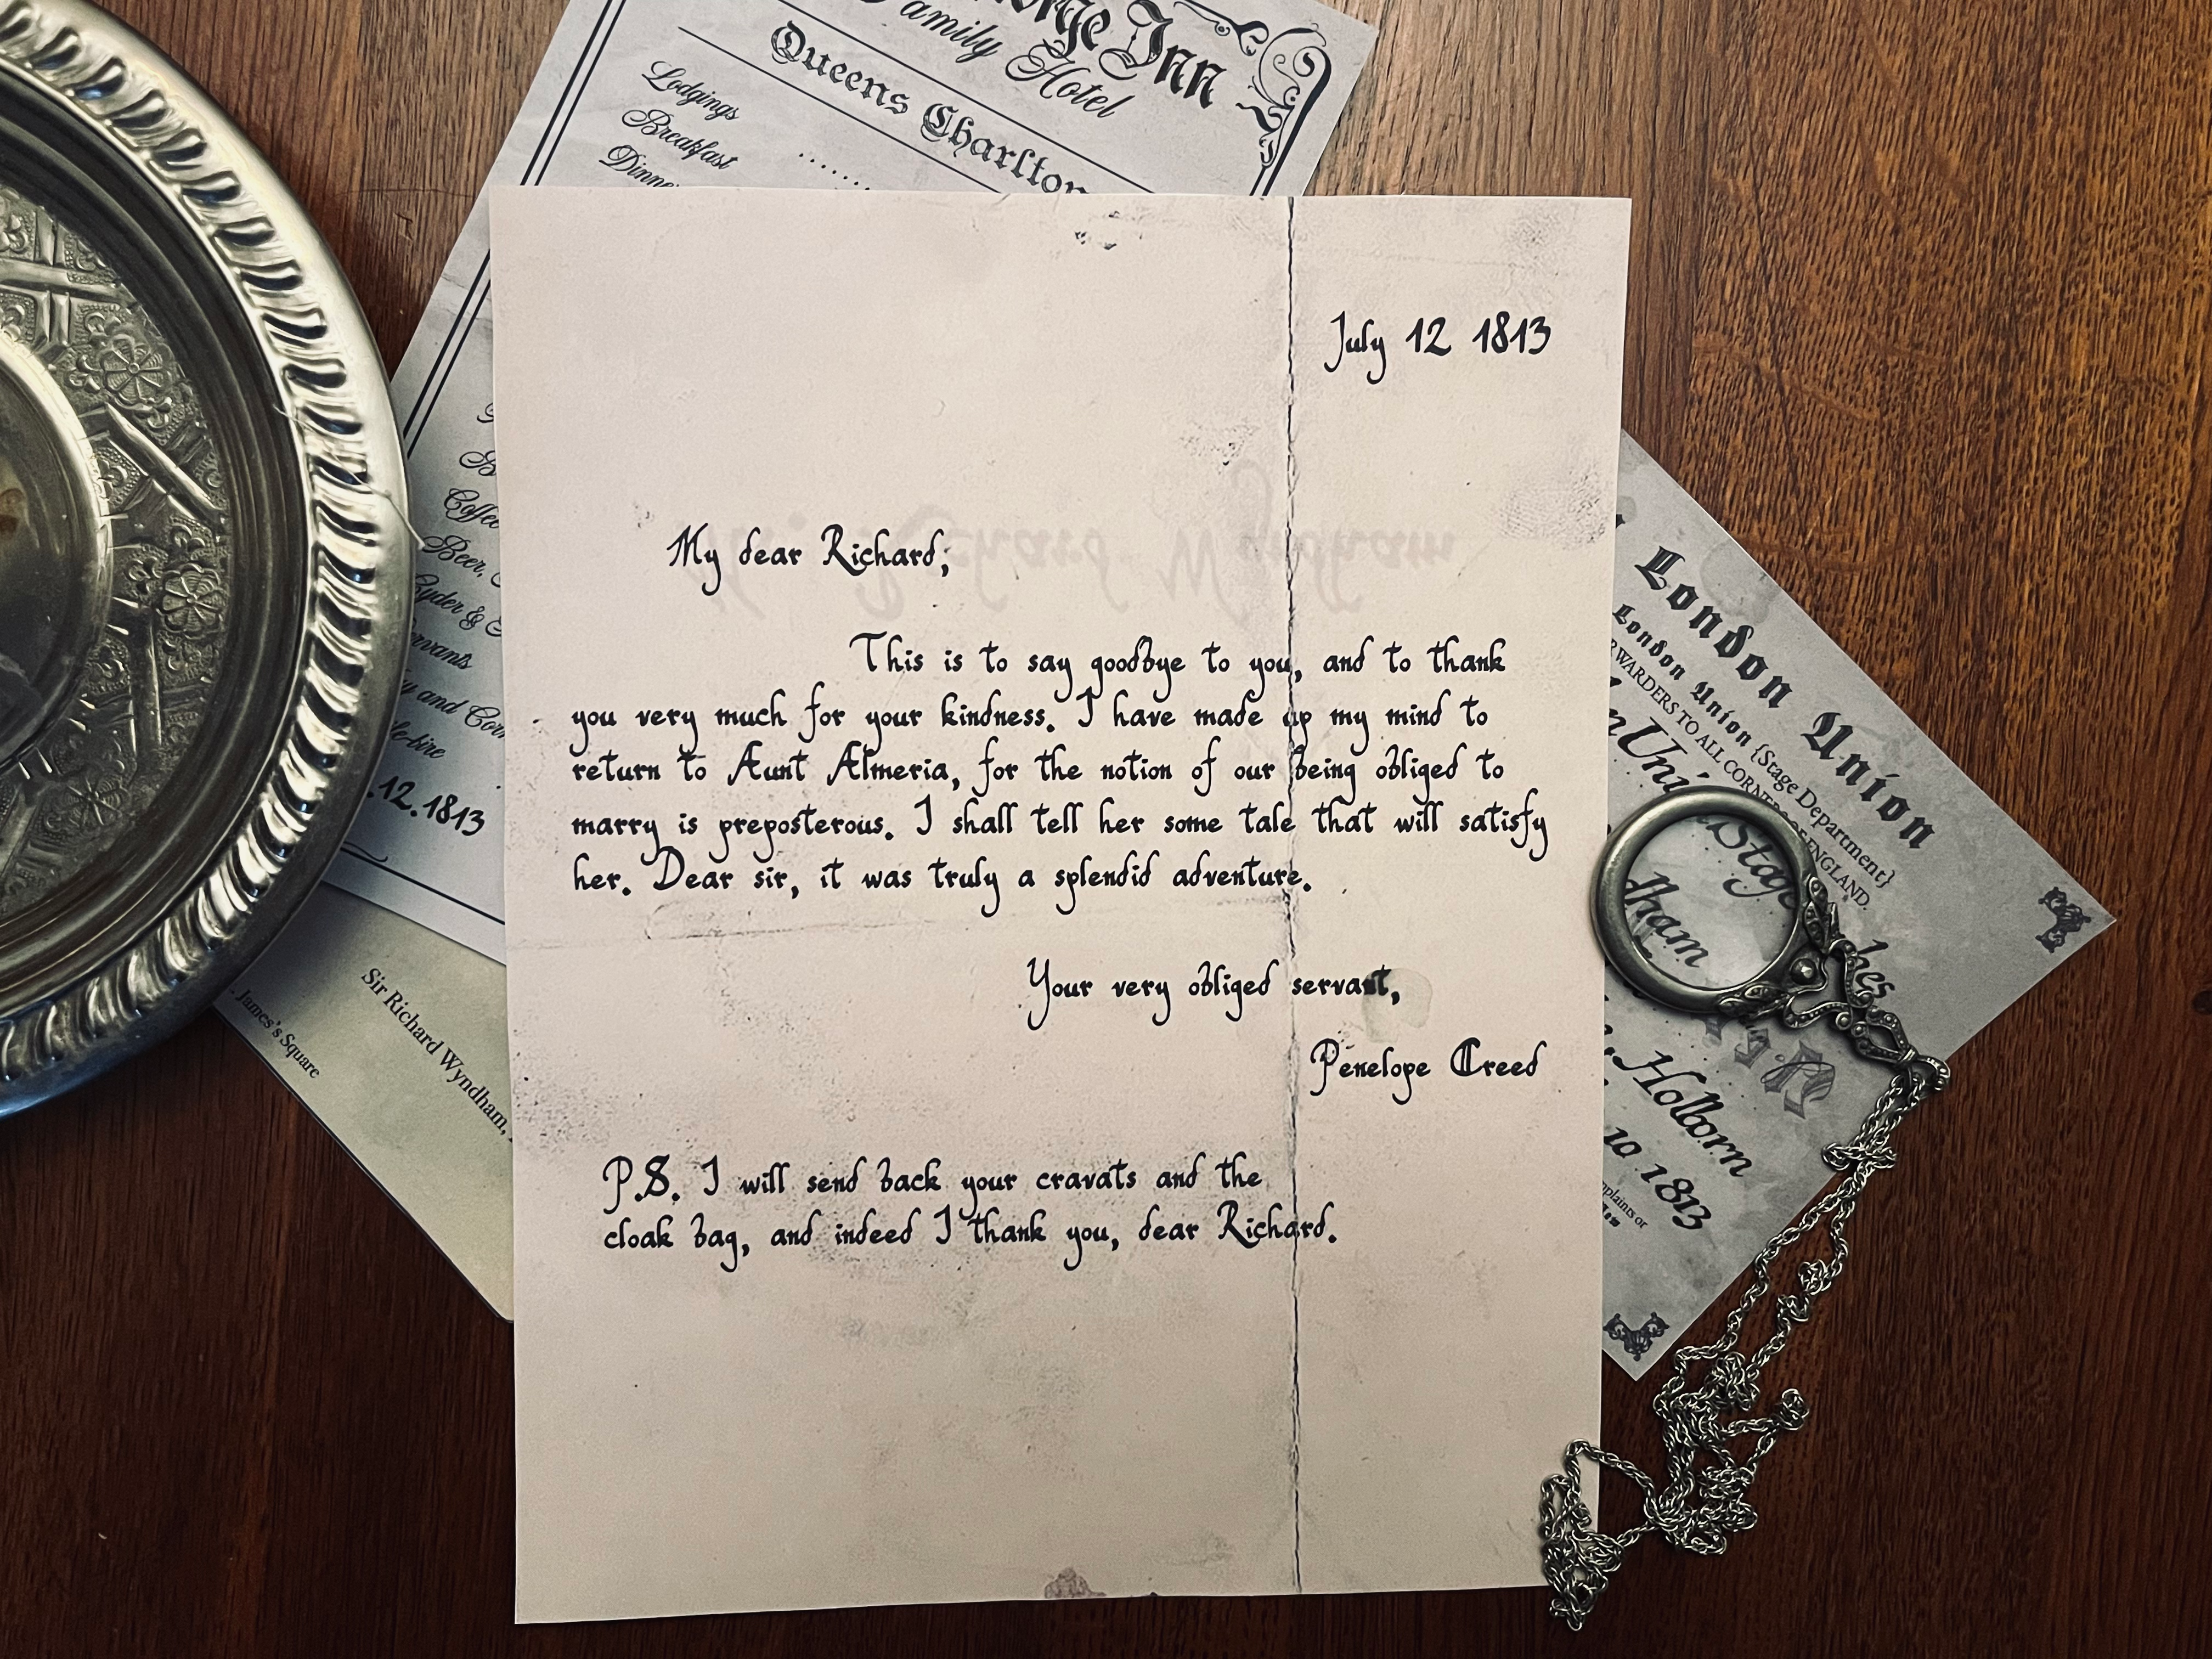 Inn
Family Hotel
Queens Charlton
Lodgings
Breakfast
July 12 1813
My dear Richard,
This is to say goodbye to you, and to thank
you very much for your kindness. I have made up my mind to
return to Aunt Almeria, for the notion of our being obliged to
marry is preposterous. I shall tell her some tale that will satisfy
her. Dear sir, it was truly a splendid adventure.
Your very obliged servant,
Penelope Creed
P.S. I will send back your cravats and the
cloak bag, and indeed I thank you, dear Richard.
Coffee
Beer,
Cyder &
and
.12.1813
Sir Richard Wyndham,
James's Square
London Union
London Union {Stage Department}
TO ALL CORNERS OF ENGLAND.
Stage
Holborn
10 1813